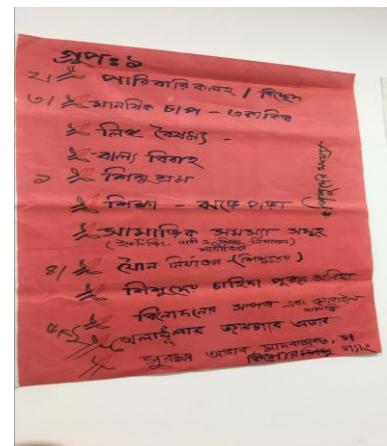 গ্রুপঃ ১
২। পারিবারিক কলহ / বিচ্ছেদ
৩। মানসিক চাপ -
লিঙ্গ বৈষম্য -
বাল্য বিবাহ
১ শিশু শ্রম
শিক্ষা - ঝরে পড়া
সামাজিক সমস্যা সমূহ
৪। যৌন নির্যাতন
শিশুদের চাহিদা পূরণে
বিনোদনের অভাব এবং
খেলাধুলার জায়গার অভাব
সুরক্ষার অভাব, মাদকাসক্ত,
কিশোর গ্যাং